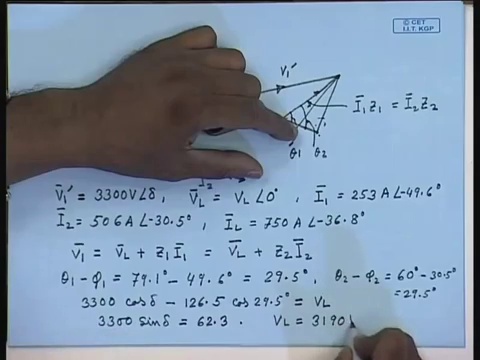 © CET
I.I.T. KGP
V̄₁′
Ī₁Z₁ = Ī₂Z₂
θ₁ θ₂
Ī₂
V̄₁′ = 3300V∠δ, V̄L = VL∠0°, Ī₁ = 253 A ∠-49.6°
Ī₂ = 506 A ∠-30.5°, ĪL = 750 A ∠-36.8°
V̄₁ = V̄L + Z₁Ī₁ = V̄L + Z₂Ī₂
θ₁ - φ₁ = 79.1° - 49.6° = 29.5°, θ₂ - φ₂ = 60° - 30.5°
= 29.5°
3300 cos δ - 126.5 cos 29.5° = VL
3300 sin δ = 62.3. VL = 3190